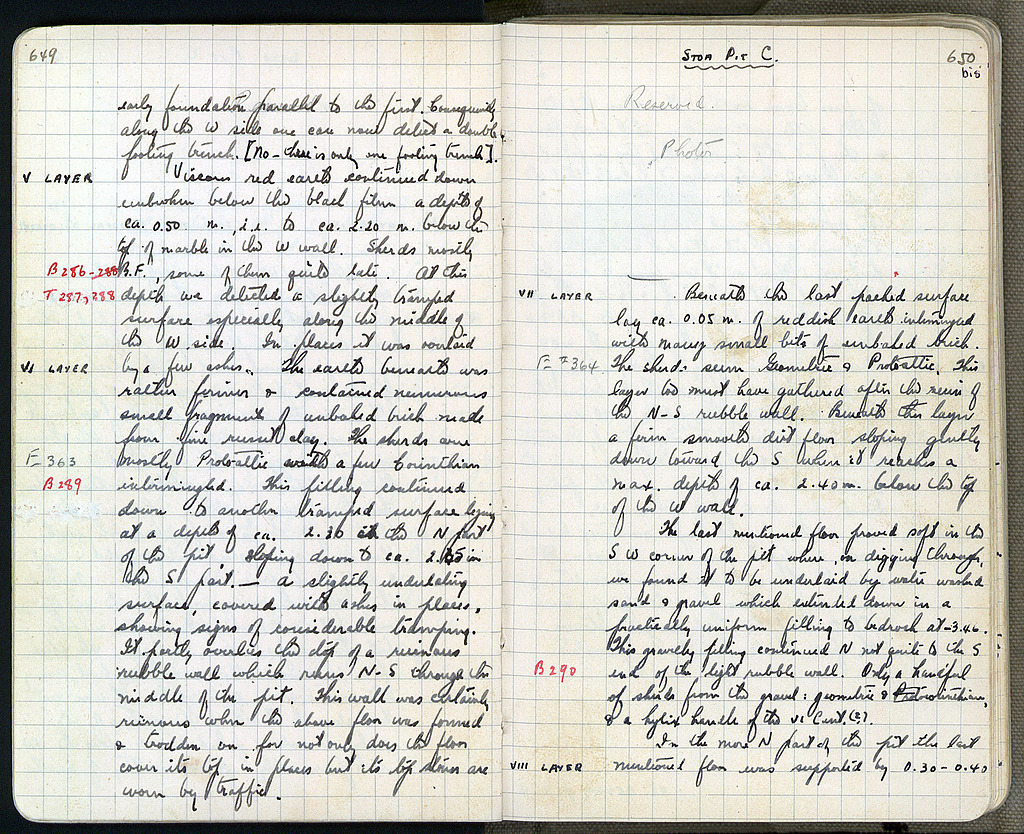 649
early foundation parallel to the first. Consequently
along the W side one can now detect a double
footing trench. [No - there is only one footing trench].
V LAYER Viscous red earth continued down
unbroken below the black film a depth of
ca. 0.50 m., i.e. to ca. 2.20 m. below the
top of marble in the W wall. Sherds mostly
B 286-288 B.F., some of them quite late. At this
T 287, 288 depth we detected a slightly tramped
surface especially along the middle of
the W side. In places it was overlaid
VI LAYER by a few ashes. The earth beneath was
rather firmer & contained numerous
small fragments of unbaked brick made
from fine russet clay. The sherds were
E 363 mostly Protoattic with a few Corinthian
B 289 intermingled. This filling continued
down to another tramped surface lying
at a depth of ca. 2.30 in the N part
of the pit sloping down to ca. in
the S part. — a slightly undulating
surface, covered with ashes in places,
showing signs of considerable tramping.
It partly overlies the top of a ruinous
rubble wall which runs N-S through the
middle of the pit. This wall was certainly
ruinous when the above floor was formed
& trodden on for not only does the floor
cover its top in places but its top stones are
worn by traffic.
STOA PIT C.
650
bis
Reserved.
Photo
VII LAYER Beneath the last packed surface
lay ca. 0.05 m. of reddish earth intermingled
with many small bits of unbaked brick.
E # 364 The sherds seem Geometric & Protoattic. This
layer too must have gathered after the ruin of
the N-S rubble wall. Beneath this layer
a firm smooth dirt floor sloping gently
down toward the S where it reaches a
max. depth of ca. 2.40 m. below the top
of the W wall.
The last mentioned floor proved soft in the
SW corner of the pit where, on digging through,
we found it to be underlaid by water washed
sand & gravel which extended down in a
practically uniform filling to bedrock at -3.46.
This gravelly filling continued N not quite to the S
B 290 end of the light rubble wall. Only a handful
of sherds from the gravel: geometric & Protocorinthian,
& a kylix handle of the VI Cent. (?).
In the more N part of the pit the last
VIII LAYER mentioned floor was supported by 0.30 - 0.40